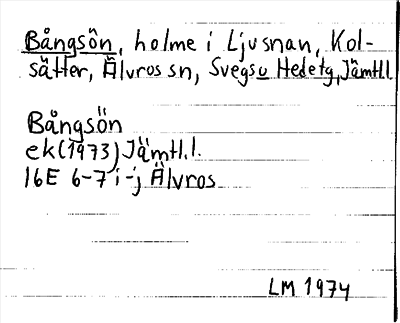 Bångsön, holme i Ljusnan, Kol-
sätter, Älvros sn, Svegs o Hedetg, Jämtl.l
Bångsön
ek(1973) Jämtl.l.
16E 6-7 i-j Älvros
LM 1974